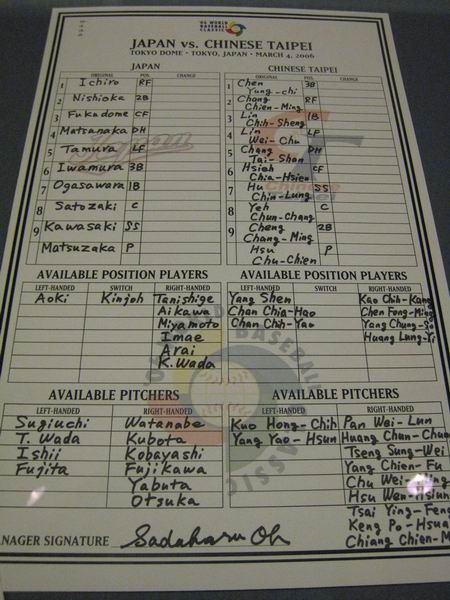 '06 WORLD
BASEBALL
CLASSIC
JAPAN vs. CHINESE TAIPEI
TOKYO DOME • TOKYO, JAPAN • MARCH 4, 2006
JAPAN
ORIGINAL POS. CHANGE
1 Ichiro RF
2 Nishioka 2B
3 Fukudome CF
4 Matsunaka DH
5 Tamura LF
6 Iwamura 3B
7 Ogasawara 1B
8 Satozaki C
9 Kawasaki SS
Matsuzaka P
CHINESE TAIPEI
ORIGINAL POS. CHANGE
1 Chen Yung-chi 3B
2 Chang Chien-Ming RF
3 Lin Chih-Sheng 1B
4 Lin Wei-Chu LF
5 Chang Tai-Shan DH
6 Hsieh Chia-Hsien CF
7 Hu Chin-Lung SS
8 Yeh Chun-Chang C
9 Cheng Chang-Ming 2B
Hsu Chu-Chien P
AVAILABLE POSITION PLAYERS
LEFT-HANDED SWITCH RIGHT-HANDED
Aoki Kinjoh Tanishige
Aikawa
Miyamoto
Imae
Arai
K.Wada
AVAILABLE POSITION PLAYERS
LEFT-HANDED SWITCH RIGHT-HANDED
Yang Sen Kao Chih-Kang
Chan Chia-Hao Chen Feng-Ming
Chan Chih-Yao Yang Chung-So
Huang Lung-Yi
AVAILABLE PITCHERS
LEFT-HANDED RIGHT-HANDED
Sugiuchi Watanabe
T. Wada Kubota
Ishii Kobayashi
Fujita Fujikawa
Yabuta
Otsuka
AVAILABLE PITCHERS
LEFT-HANDED RIGHT-HANDED
Kuo Hong-Chih Pan Wei-Lun
Yang Yao-Hsun Huang Chun-Chu
Tseng Sung-Wei
Yang Chien-Fu
Chu Wei-Ming
Hsu Wen-Hsiun
Tsai Ying-Feng
Keng Po-Hsua
Chiang Chien-M
ANAGER SIGNATURE Sadaharu Oh